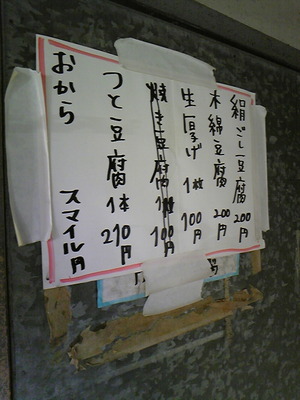 絹ごし豆腐 200円
木綿豆腐 200円
生揚げ 1枚 100円
焼き豆腐 1個 100円
つと豆腐 1本 210円
おから スマイル円